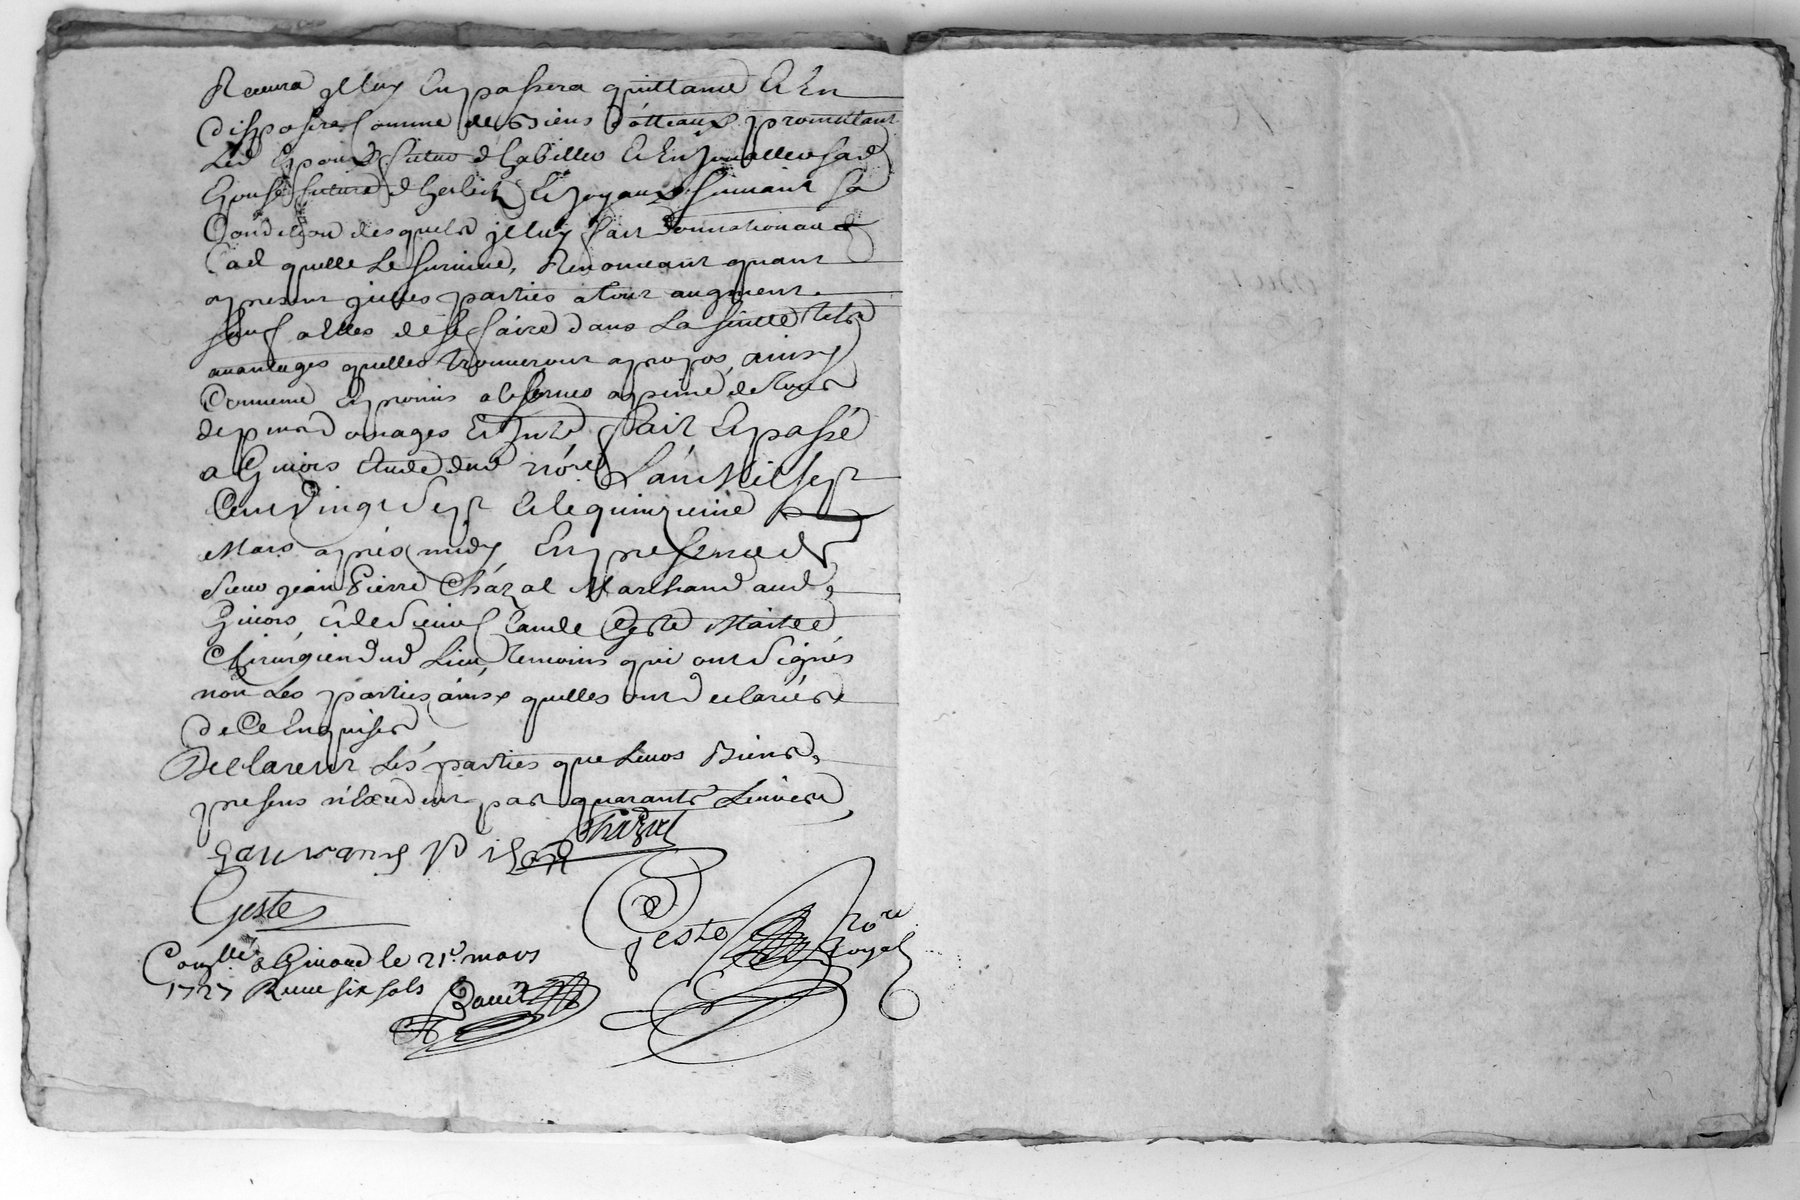 Recevra illuy en passera quittance et en
disposera comme de biens dotteaux promettant
Led Epoux futur d'habiller et en joualler sad
Epouse future d et joyaux suivant sa
Condition desquels illuy fait donnation au
Cad quelle le survive, Renonceant quant
apresent jcelles parties a tout augment
sauf a elles de se faire dans la suitte telz
avantages quelles trouveront apropos, ainsy
Convenu et promis alobserver apeine de tous
depens domages et Fait et passé
a Givors Etude dud nore. L'an Mil sept
Cent vingt sept et le quinzieme
Mars après midy En presence de
sieur jean Pierre Cházal Marchand aud
Givors, et de sieur Claude Geste Maitre
Chirurgien dud Lieu, temoins qui ont signés
non Les parties ainsy quelles ont declarées
de Ce Enquises
Declarent Les parties que Leurs Biens
presens n'Excedent pas quarante Livres
Chazal
Geste
Geste nore
Royal
Conllé a Givord le 21e. mars
1727 Receu six sols